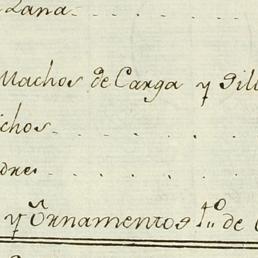 Lana
Machos de Carga y Sill
chos
dres
y Ornamentos 1º de